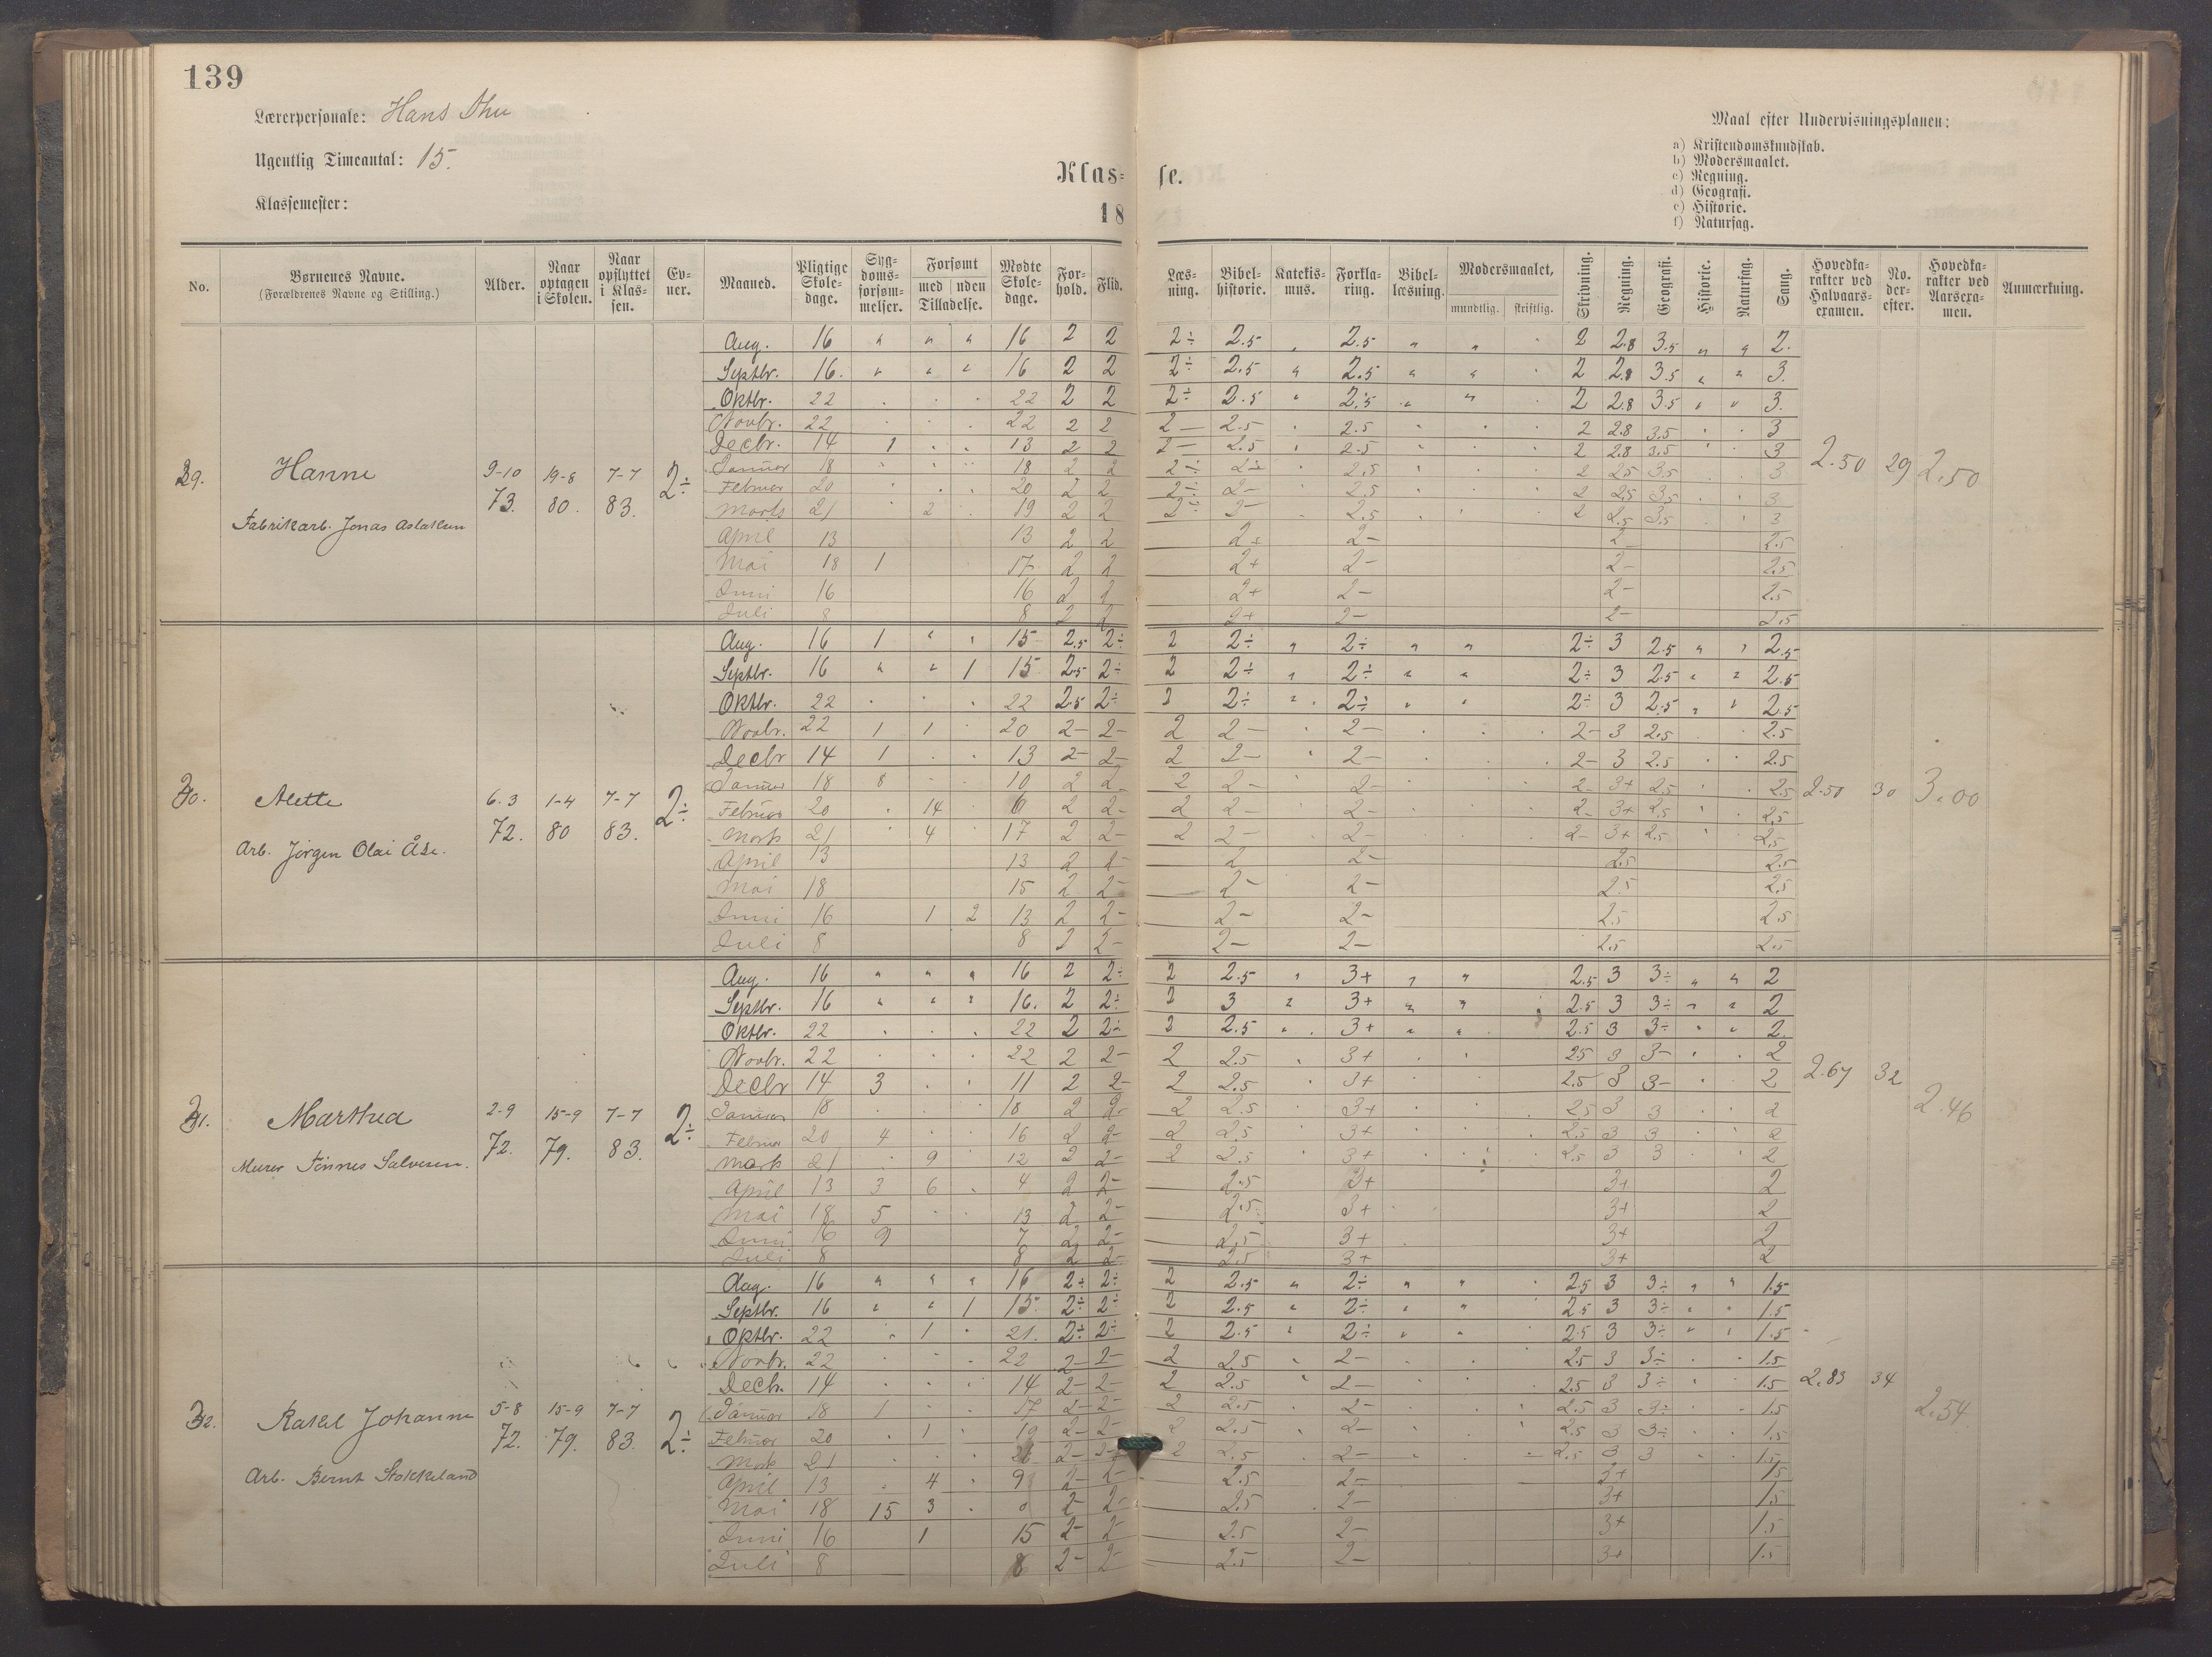 139
Lærerpersonale: Hans Thu
Ugentlig Timeantal: 15.
Klassemester:
Klas= se.
18
Maal efter Undervisningsplanen:
a) Kristendomskundskab.
b) Modersmaalet.
c) Regning.
d) Geografi.
e) Historie.
f) Naturfag.
No. Børnenes Navne. (Forældrenes Navne og Stilling.) Alder. Naar optagen i Skolen. Naar opflyttet i Klassen. Evner. Maaned. Pligtige Skoledage. Sygdomsforsømmelser. Forsømt med uden Tilladelse. Mødte Skoledage. Forhold. Flid. Læsning. Bibelhistorie. Katekismus. Forklaring. Bibellæsning. Modersmaalet, mundtlig. skriftlig. Skrivning. Regning. Geografi. Historie. Naturfag. Sang. Hovedkarakter ved Halvaarsexamen. No. derefter. Hovedkarakter ved Aarsexamen. Anmærkning.
29. Hanne
Fabrikarb. Jonas Aslaksen
9-10 73. 19-8 80. 7-7 83. 2÷
Aug. 16 " " " 16 2 2 2÷ 2.5 " 2.5 " " 2 2.8 3.5 " " 2.
Septbr. 16. " " " 16 2 2 2÷ 2.5 " 2.5 " " 2 2.8 3.5 " " 3.
Oktbr. 22 . . . 22 2 2 2÷ 2.5 " 2.5 " " 2 2.8 3.5 " " 3.
Novbr. 22 . . . 22 2 2 2- 2.5 2.5 2 2.8 3.5 3
Decbr. 14 1 . . 13 2 2 2- 2.5 2.5 2 2.8 3.5 3
Januar 18 18 2 2 2÷ 2÷ 2.5 2 2.5 3.5 3
Februar 20 20 2 2 2÷ 2- 2.5 2 2.5 3.5 3
Marts 21 2 19 2 2 2÷ 2- 2.5 2 2.5 3.5 3
April 13 13 2 2 2+ 2- 2- 2.5
Mai 18 1 17 2 2 2+ 2- 2- 2.5
Juni 16 16 2 2 2+ 2- 2- 2.5
Juli 8 8 2 2 2+ 2- 2- 2.5
2.50 29 2.50
30. Alette
Arb. Jörgen Olai Åse.
6.3 72. 1-4 80 7-7 83. 2÷
Aug. 16 1 " " 15 2.5 2÷ 2 2÷ " 2÷ " " 2÷ 3 2.5 " " 2.5
Septbr. 16 " " 1 15 2.5 2÷ 2 2÷ " 2÷ " " 2÷ 3 2.5 " " 2.5
Oktbr. 22 . . . 22 2.5 2÷ 2 2÷ " 2÷ " " 2÷ 3 2.5 " " 2.5
Novbr. 22 1 1 20 2- 2- 2 2- 2- 2- 3 2.5 2.5
Decbr 14 1 . . 13 2- 2- 2 2- 2- 2- 3 2.5 2.5
Januar 18 8 10 2 2- 2 2- 2- 2- 3+ 2.5 2.5
Februar 20 14 6 2 2- 2 2- 2- 2- 3+ 2.5 2.5
Marts 21 4 17 2 2- 2 2- 2- 2- 3+ 2.5 2.5
April 13 13 2 2- 2 2- 2.5 2.5
Mai 18 15 2 2- 2- 2- 2.5 2.5
Juni 16 1 2 13 2 2- 2- 2- 2.5 2.5
Juli 8 8 2 2- 2- 2- 2.5 2.5
2.50 30 3.00
31. Marthea
Murer Tönnes Salvesen.
2-9 72. 15-9 79. 7-7 83. 2÷
Aug. 16 " " " 16 2 2÷ 2 2.5 " 3+ " " 2.5 3 3÷ " " 2
Septbr. 16 " " " 16. 2 2÷ 2 3 " 3+ " " 2.5 3 3÷ " " 2
Oktbr. 22 . . . 22 2 2÷ 2 2.5 " 3+ " " 2.5 3 3÷ " " 2.
Novbr. 22 . . . 22 2 2- 2 2.5 3+ 2.5 3 3- 2
Decbr 14 3 . . 11 2 2- 2 2.5 3+ 2.5 3 3- 2
Januar 18 18 2 2- 2 2.5 3+ 2.5 3 3 2
Februar 20 4 16 2 2- 2 2.5 3+ 2.5 3 3 2
Marts 21 9 12 2 2- 2 2.5 3+ 2.5 3 3 2
April 13 3 6 4 2 2- 2.5 3+ 3+ 2
Mai 18 5 13 2 2- 2.5 3+ 3+ 2
Juni 16 9 7 2 2- 2.5 3+ 3+ 2
Juli 8 8 2 2- 2.5 3+ 3+ 2
2.67 32 2.46
32. Rakel Johanne
Arb. Bernt Stokkeland
5-8 72. 15-9 79. 7-7 83. 2÷
Aug. 16 " " " 16 2÷ 2÷ 2 2.5 " 2÷ " " 2.5 3 3÷ " " 1.5
Septbr. 16 " " 1 15. 2÷ 2÷ 2 2.5 " 2÷ " " 2.5 3 3÷ " " 1.5
Oktbr. 22 " 1 . 21. 2÷ 2÷ 2 2.5 " 2÷ " " 2.5 3 3÷ " " 1.5
Novbr. 22 . . . 22 2- 2- 2 2.5 2- 2.5 3 3÷ 1.5
Decbr. 14 . . . 14 2- 2- 2 2.5 2- 2.5 3 3÷ 1.5
Januar 18 1 17 2- 2- 2 2.5 2- 2.5 3 3÷ 1.5
Februar 20 1 19 2- 2- 2 2.5 2- 2.5 3 3÷ 1.5
Marts 21 2- 2- 2 2.5 2- 2.5 3 3 1.5
April 13 4 9 2- 2- 2.5 2- 3+ 1.5
Mai 18 15 3 0 2- 2- 2.5 2- 3+ 1.5
Juni 16 1 15 2- 2- 2.5 2- 3+ 1.5
Juli 8 8 2- 2- 2.5 2- 3+ 1.5
2.83 34 2.54